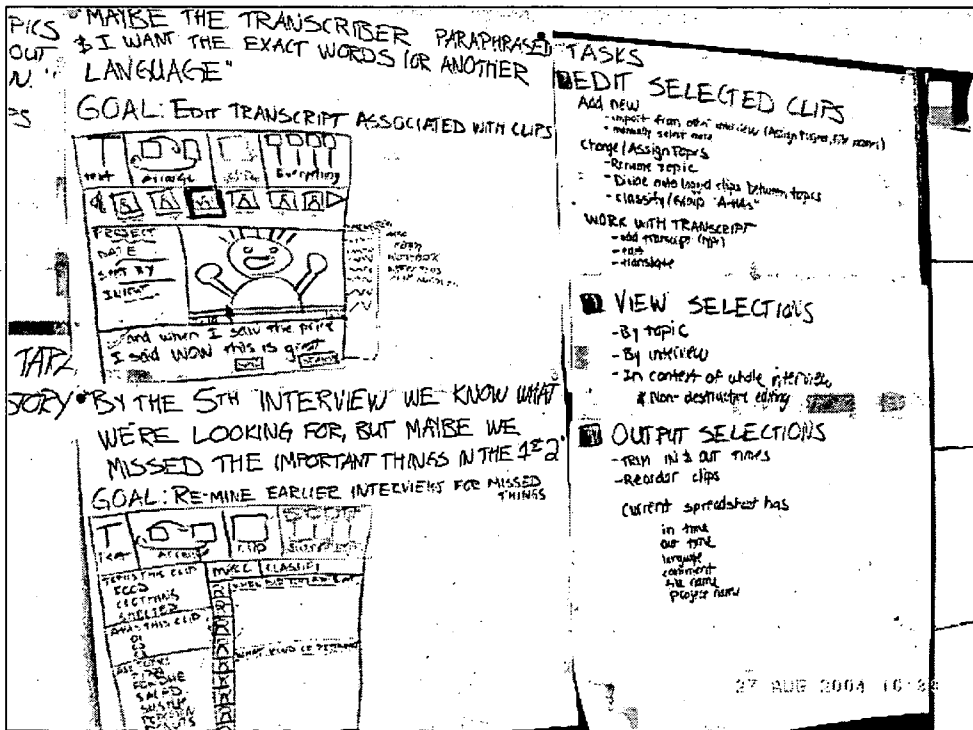 PICS
OUT
N."
"MAYBE THE TRANSCRIBER PARAPHRASED
& I WANT THE EXACT WORDS (OR ANOTHER
LANGUAGE"
GOAL: EDIT TRANSCRIPT ASSOCIATED WITH CLIPS
text
Arrange
Everything
PROJECT
DATE
SORT BY
...and when I saw the price
I said WOW this is great
STORY
• BY THE 5TH "INTERVIEW" WE KNOW WHAT
WE'RE LOOKING FOR, BUT MAYBE WE
MISSED THE IMPORTANT THINGS IN THE 1ST 2
GOAL: RE-MINE EARLIER INTERVIEWS FOR MISSED
THINGS
Text
Arrange
Clip
TOPICS THIS CLIP
FOOD
CLOTHING
SHELTER
AHAS THIS CLIP
MARK
CLASSIFY
SALAD
TASKS
EDIT SELECTED CLIPS
Add new
- import from other interview (Assign Project, File names)
- manually select more
Change/Assign Topics
- Rename topic
- Divide auto logged clips between topics
- Classify/Group "A-HAs"
WORK WITH TRANSCRIPT
- add transcript (type)
- edit
- translate
VIEW SELECTIONS
- By topic
- By interview
- In context of whole interview
& Non-destructive editing
OUTPUT SELECTIONS
- TRIM IN & OUT TIMES
- Reorder clips
Current spreadsheet has
in time
out time
language
comment
file name
project name
27 AUG 2004